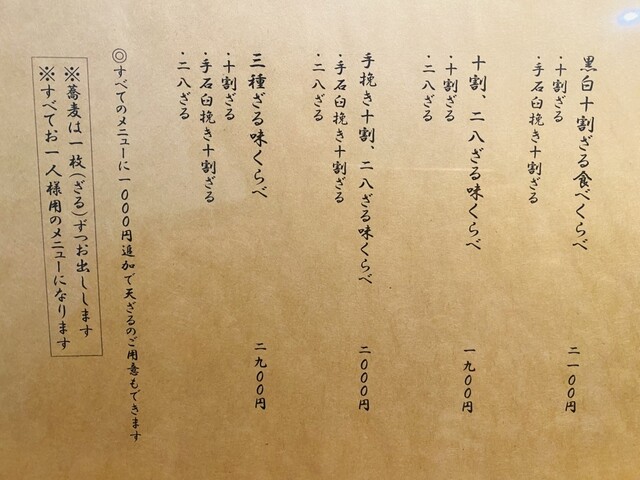 黒白十割ざる食べくらべ 二一〇〇円
・十割ざる
・手石臼挽き十割ざる
十割、二八ざる味くらべ 一九〇〇円
・十割ざる
・二八ざる
手挽き十割、二八ざる味くらべ 二〇〇〇円
・手石臼挽き十割ざる
・二八ざる
三種ざる味くらべ 二九〇〇円
・十割ざる
・手石臼挽き十割ざる
・二八ざる
◎すべてのメニューに一〇〇〇円追加で天ざるのご用意もできます
※蕎麦は一枚(ざる)ずつお出しします
※すべてお一人様用のメニューになります